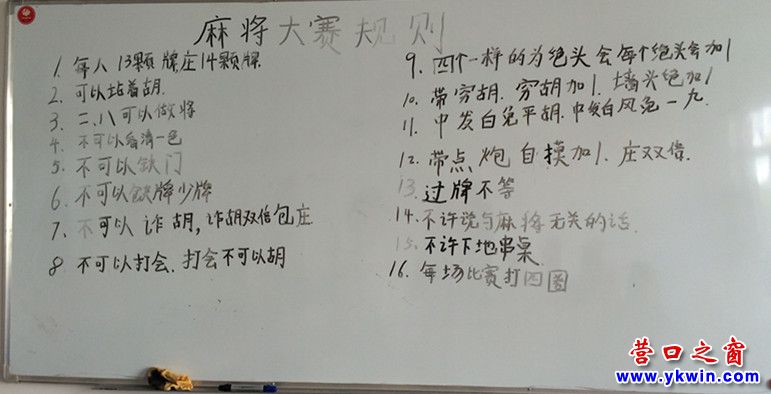 麻将大赛规则
1. 每人13颗牌庄14颗牌
2. 可以站着胡.
3. 二.八可以做将
4. 不可以
清一色
5. 不可以缺门
6. 不可以缺牌少牌
7. 不可以诈胡,诈胡双倍包庄
8 不可以打会.打会不可以胡
9. 四个一样的为绝头会每个绝头会加1
10. 带穷胡.穷胡加1.墙头绝加1
11. 中发白免平胡.中发白风免一九.
12. 带点炮自摸加1.庄双倍.
13. 过牌不等
14. 不许说与麻将无关的话.
15. 不许下地串桌
16. 每场比赛打四圈
营口之窗
www.ykwin.com